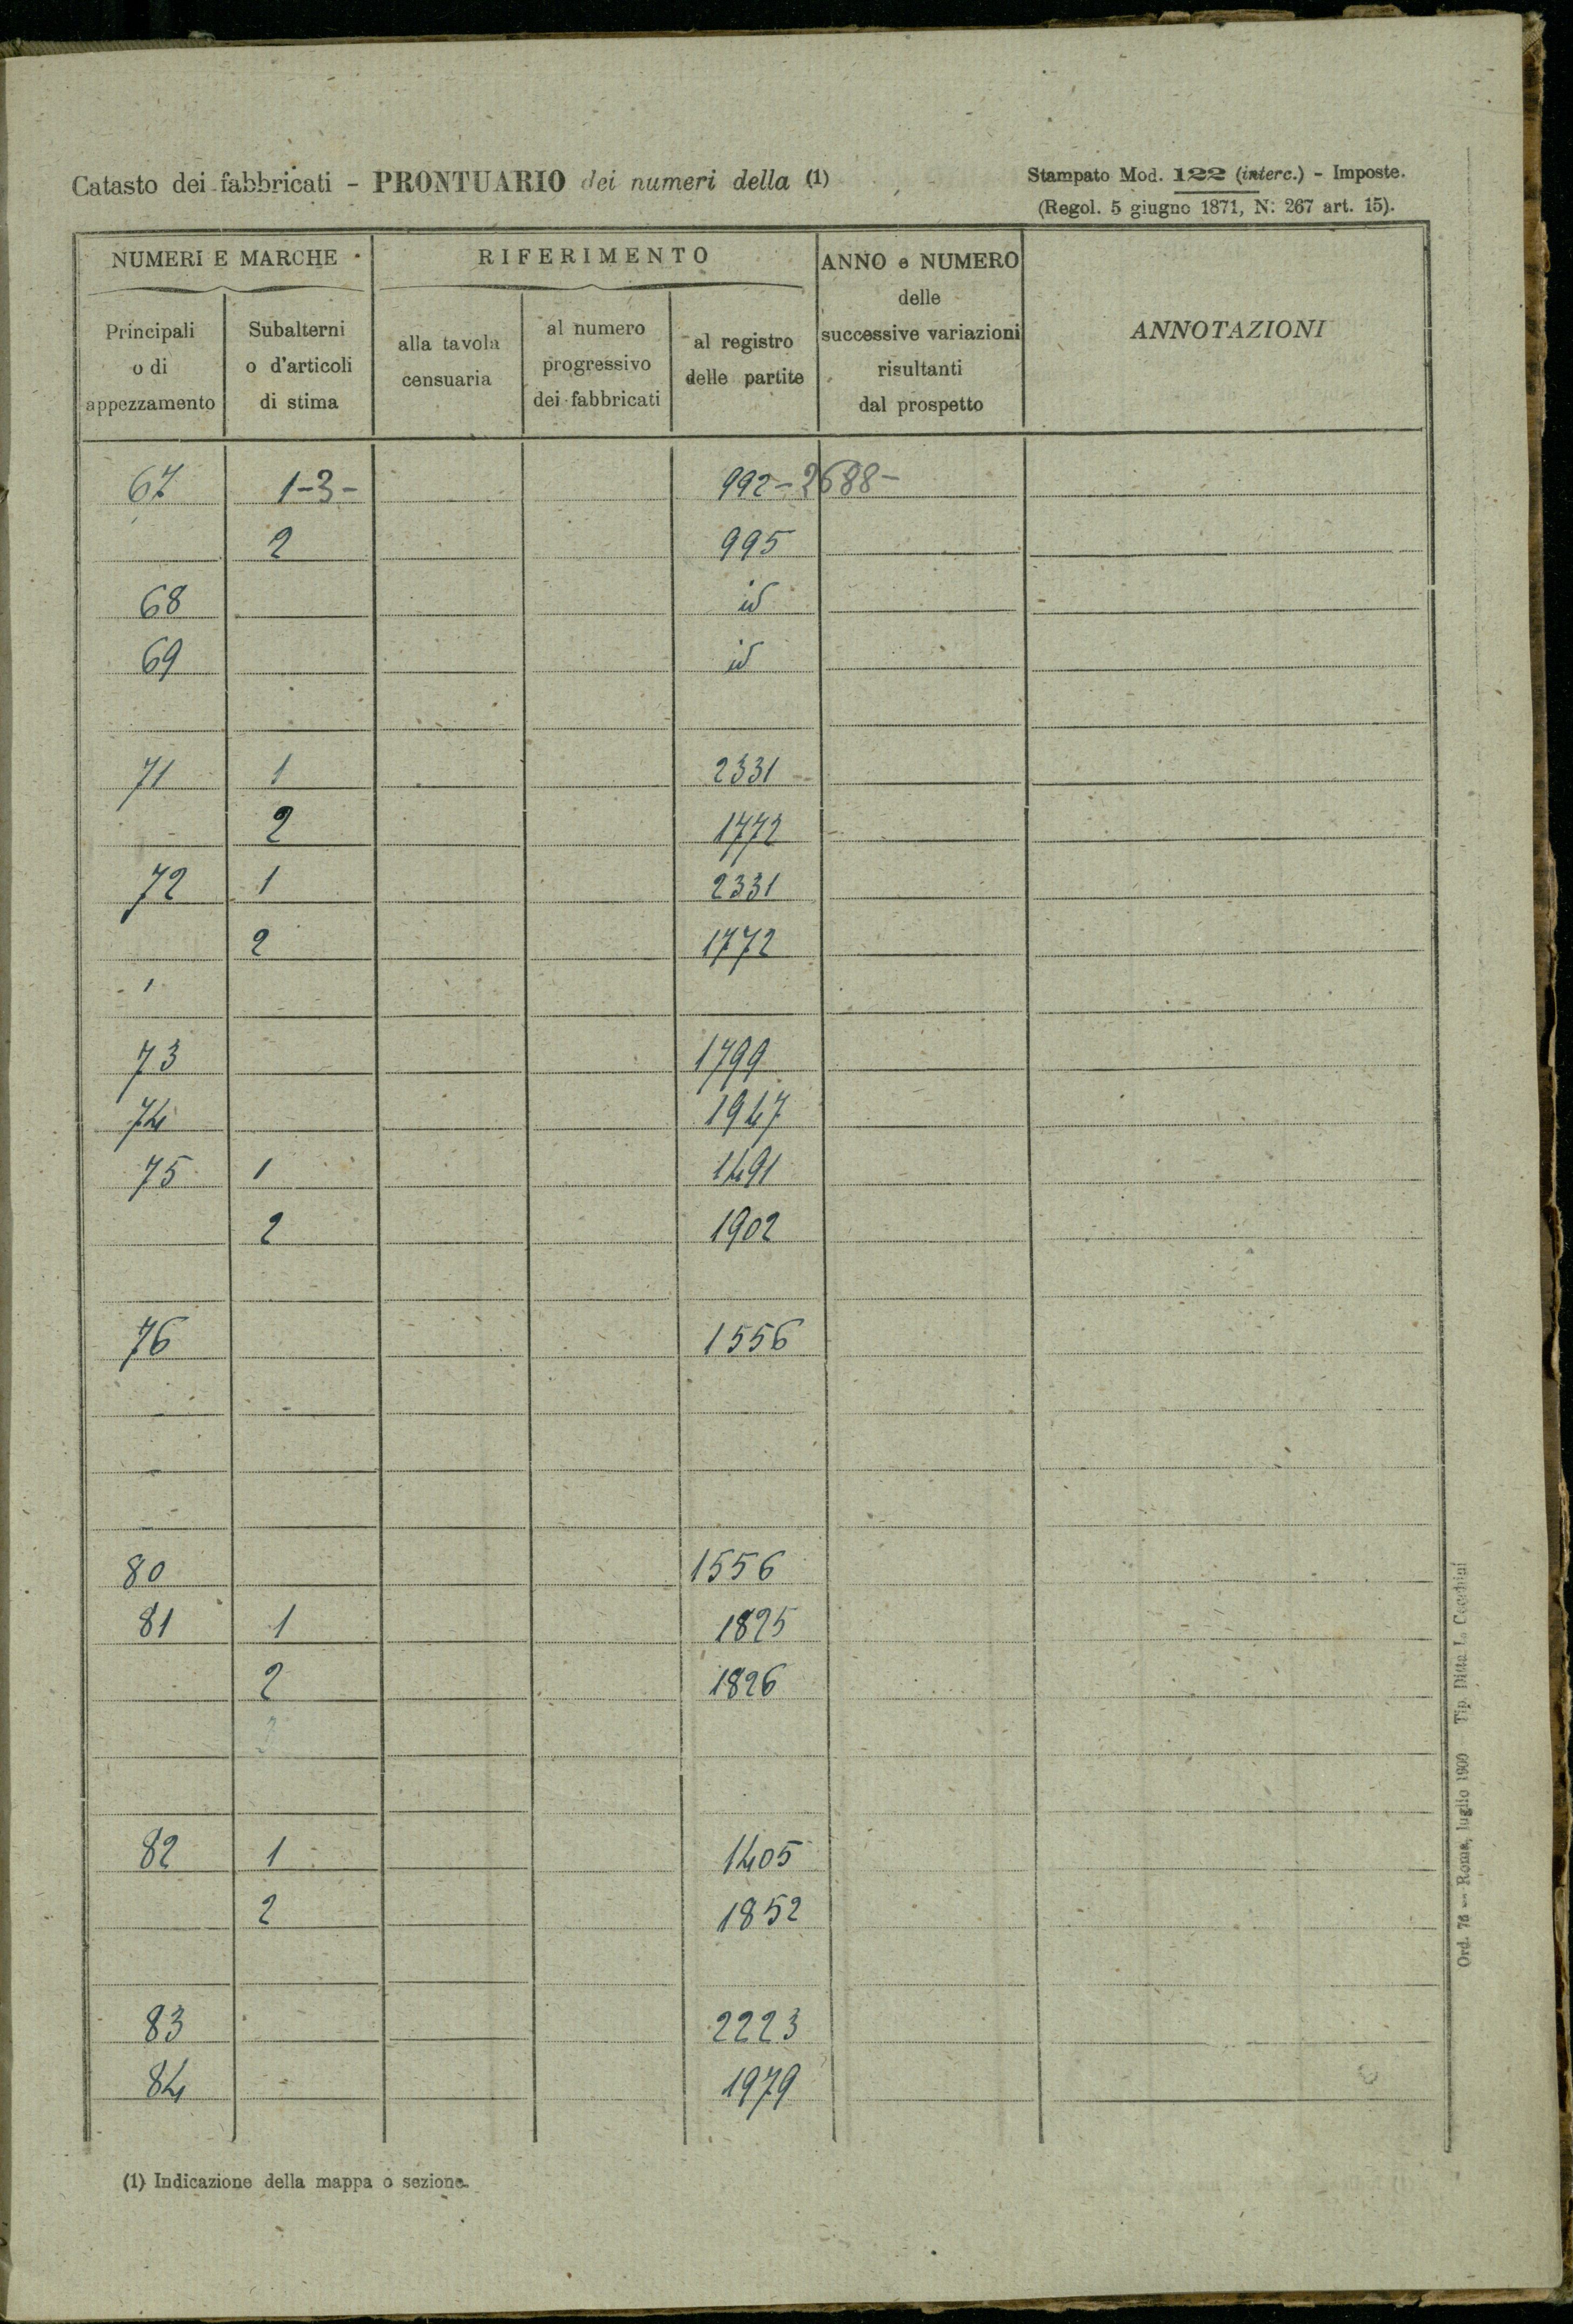 Catasto dei fabbricati - PRONTUARIO dei numeri della (1)
Stampato Mod. 122 (interc.) - Imposte.
(Regol. 5 giugno 1871, N. 267 art. 15).
NUMERI E MARCHE
RIFERIMENTO
ANNO e NUMERO
delle
successive variazioni
risultanti
dal prospetto
ANNOTAZIONI
Principali
o di
appezzamento
Subalterni
o d'articoli
di stima
alla tavola
censuaria
al numero
progressivo
dei fabbricati
al registro
delle partite
67 1-3- 992-2688-
2 995
68 id
69 id
71 1 2331
2 1772
72 1 2331
2 1772
73 1799
74 1947
75 1 1491
2 1902
76 1556
80 1556
81 1 1825
2 1826
3
82 1 1405
2 1852
83 2223
84 1979
(1) Indicazione della mappa o sezione.
Ord. 76 — Roma, luglio 1900 Tip. Ditta L. Cecchini